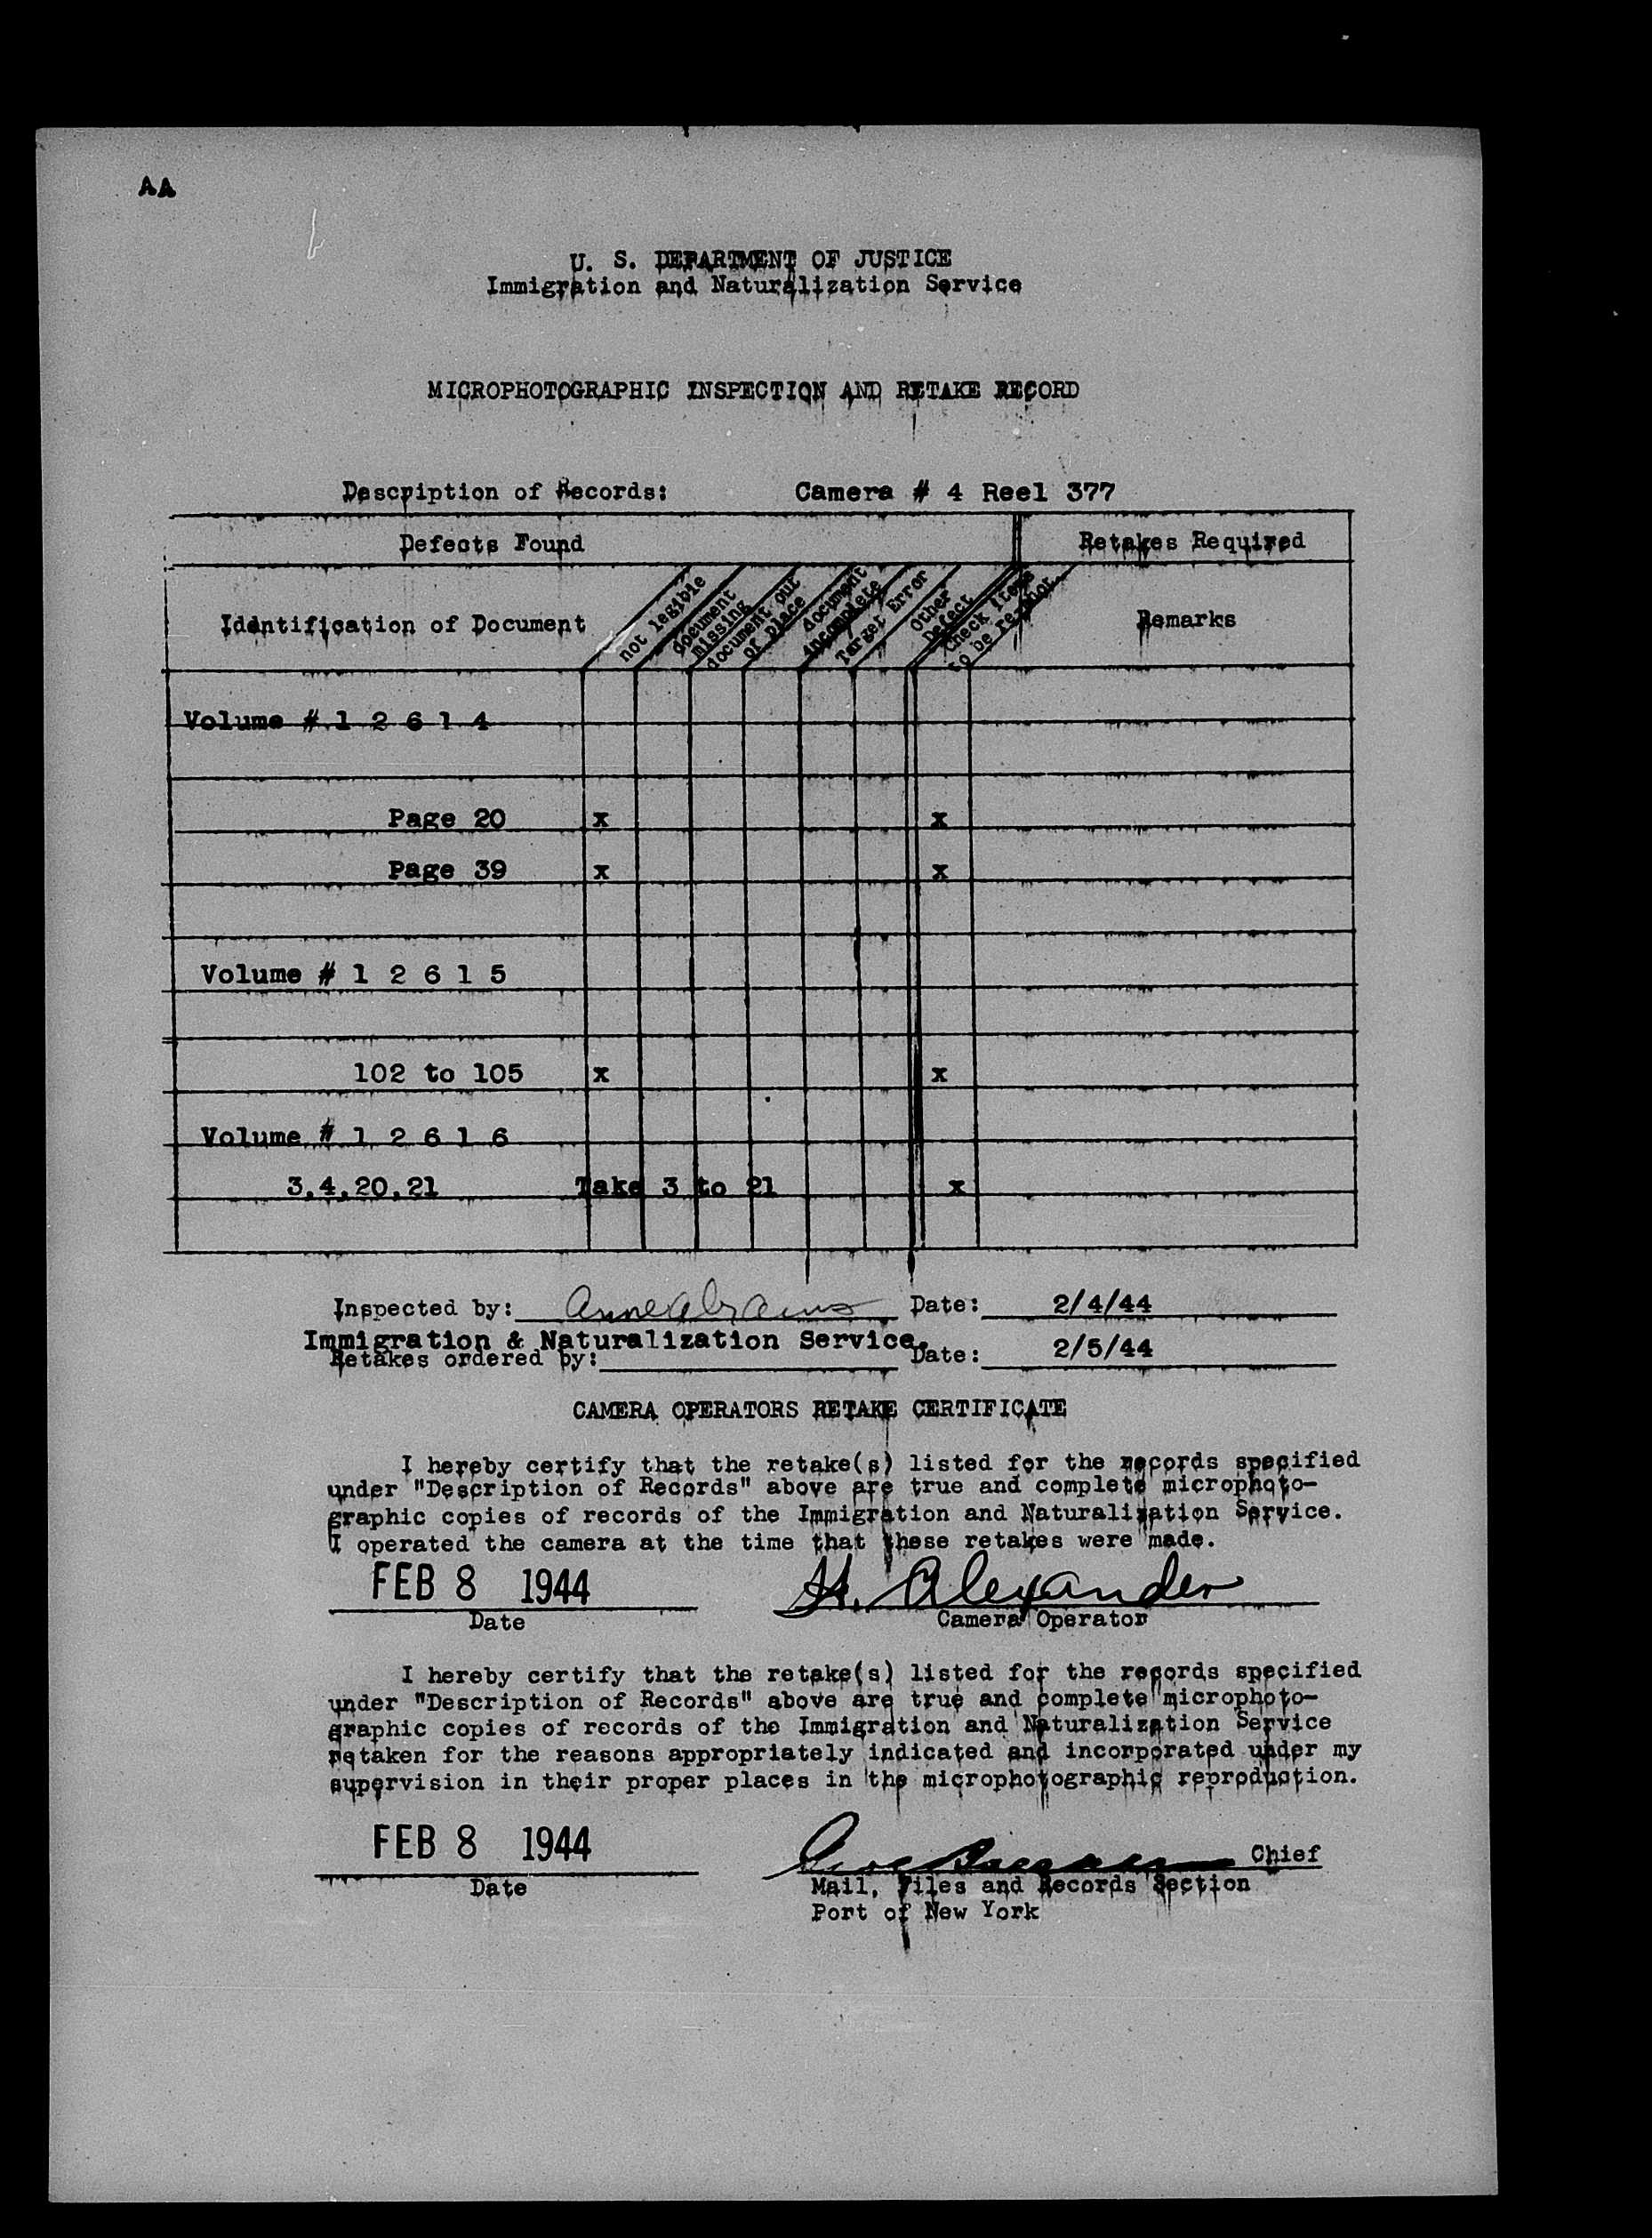 AA
U. S. DEPARTMENT OF JUSTICE
Immigration and Naturalization Service
MICROPHOTOGRAPHIC INSPECTION AND RETAKE RECORD
Description of Records: Camera # 4 Reel 377
Defects Found Retakes Required
Identification of Document
not legible
document
missing
document out
of place
document
incomplete
Target Error
Other
Defect
Check items
to be
Remarks
Volume # 1 2 6 1 4
Page 20 x x
Page 39 x x
Volume # 1 2 6 1 5
102 to 105 x x
Volume # 1 2 6 1 6
3,4,20,21 Take 3 to 21 x
Inspected by: Anne Abrams Date: 2/4/44
Immigration & Naturalization Service.
Retakes ordered by: Date: 2/5/44
CAMERA OPERATORS RETAKE CERTIFICATE
I hereby certify that the retake(s) listed for the records specified
under "Description of Records" above are true and complete microphoto-
graphic copies of records of the Immigration and Naturalization Service.
I operated the camera at the time that these retakes were made.
FEB 8 1944 H. Alexander
Date Camera Operator
I hereby certify that the retake(s) listed for the records specified
under "Description of Records" above are true and complete microphoto-
graphic copies of records of the Immigration and Naturalization Service
retaken for the reasons appropriately indicated and incorporated under my
supervision in their proper places in the microphotographic reproduction.
FEB 8 1944 Chief
Date Mail, Files and Records Section
Port of New York